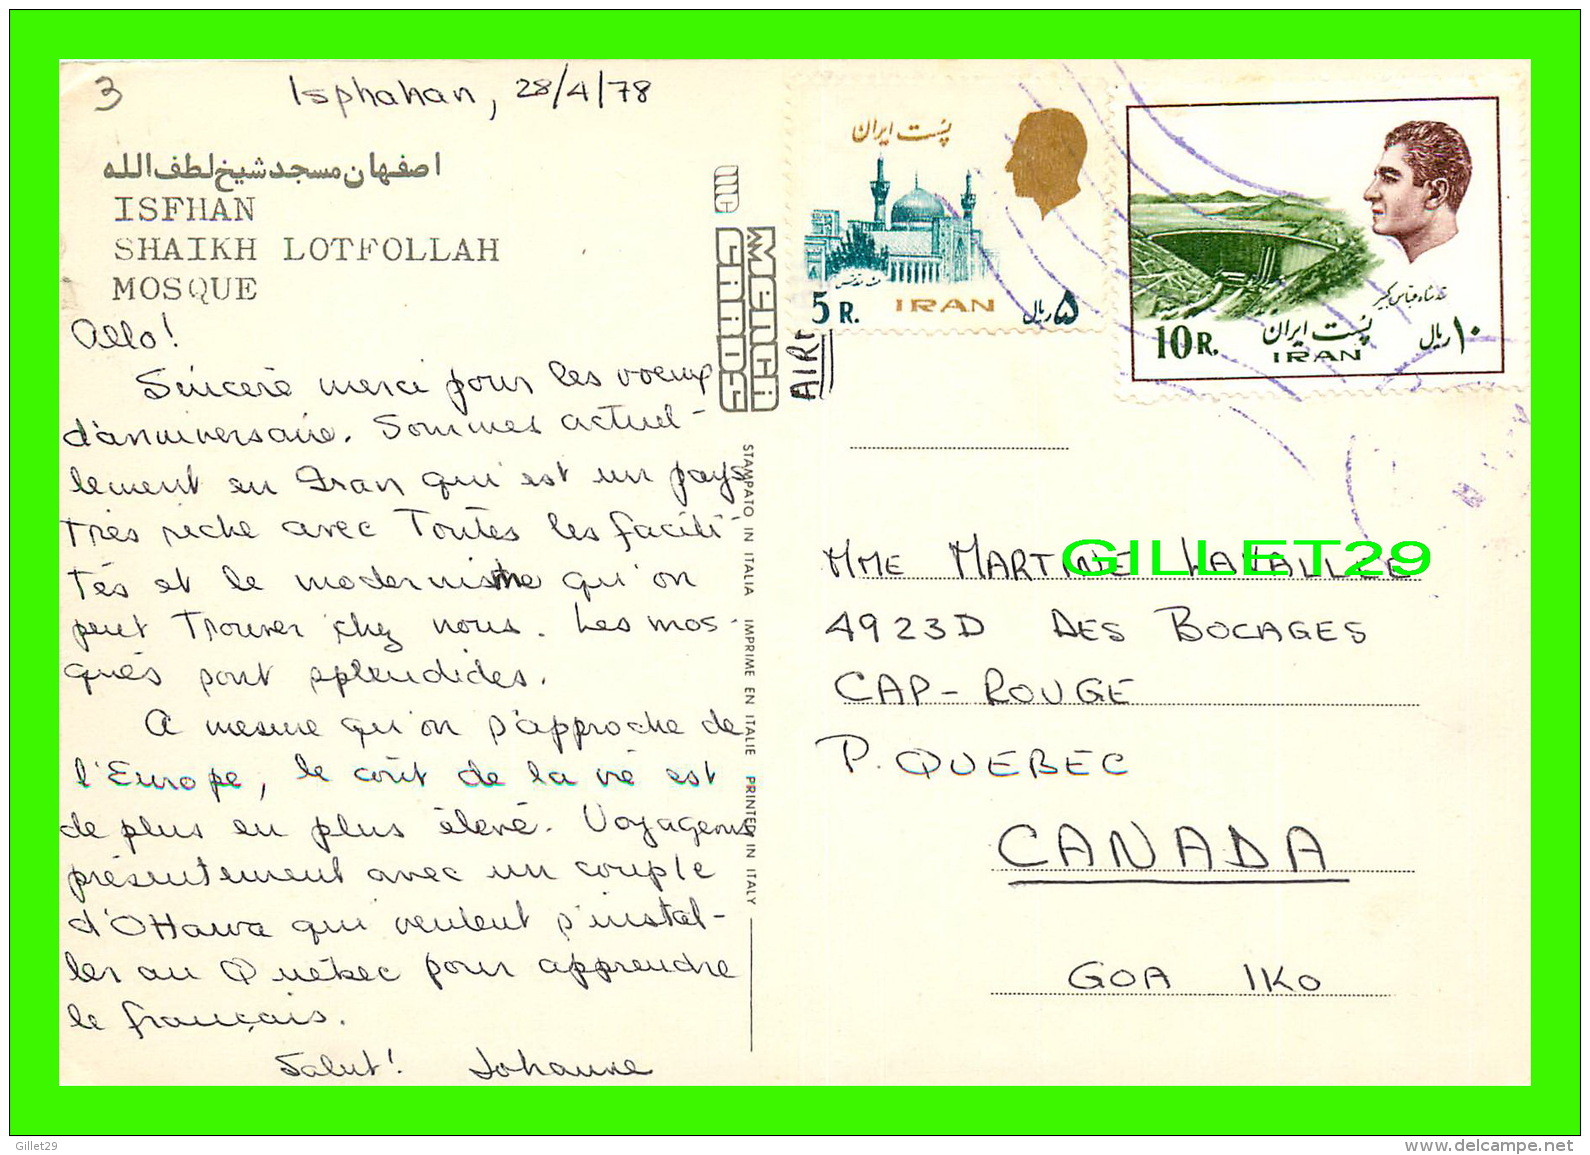 3
Isphahan, 28/4/78
اصفهان مسجد شیخ لطف الله
ISFHAN
SHAIKH LOTFOLLAH
MOSQUE
Allo!
Sincère merci pour les voeux
d'anniversaire. Sommes actuel-
lement en Iran qui est un pays
très riche avec toutes les facili-
tés et le modernisme qu'on
peut trouver chez nous. Les mos-
qués sont splendides.
A mesure qu'on s'approche de
l'Europe, le coût de la vie est
de plus en plus élevé. Voyageons
présentement avec un couple
d'Ottawa qui veulent s'instal-
ler au Québec pour apprendre
le français.
Salut! Johanne
mc
MENCA
CARDS
STAMPATO IN ITALIA IMPRIME EN ITALIE PRINTED IN ITALY
پست ایران
5 R. IRAN ریال ۵
سد شاه عباس کبیر
پست ایران
10 R. IRAN ریال ۱۰
MME MARTINE LAVALLEE
GILLET29
4923D DES BOCAGES
CAP-ROUGE
P. QUEBEC
CANADA
GOA 1K0
Gillet29
www.delcampe.net